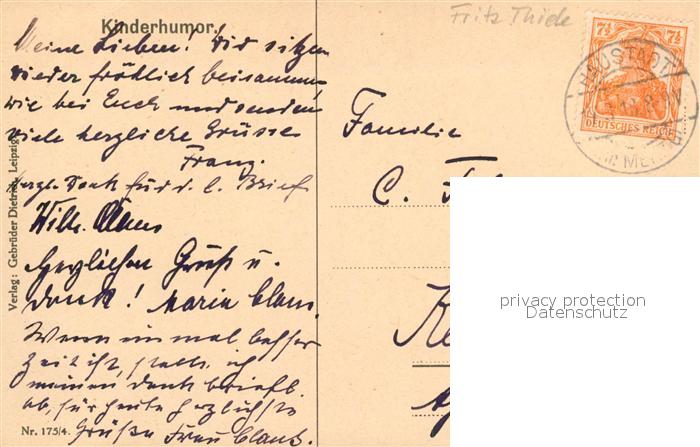 Kinderhumor.
Fritz Thiele
Meine Lieben! Wir sitzen
wieder fröhlich beisammen
wie bei Euch und senden
viele herzliche Grüsse
Franz.
herzl. Dank für d. l. Brief
Wilh. Claus
Herzlichen Gruß u.
Dank! Maria Claus.
Wenn einmal besser
Zeit ist, statte ich
meinen Dank briefl.
ab, für heute herzlichste
Grüße Frau Claus.
Nr. 175/4.
Verlag: Gebrüder Dietrich, Leipzig
Familie
C.
7½ 7½
DEUTSCHES REICH
privacy protection
Datenschutz